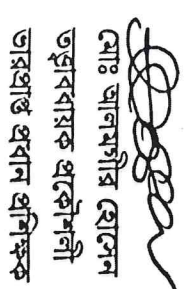 মোঃ আলমগীর হোসেন
তত্ত্বাবধায়ক প্রকৌশলী
ভারপ্রাপ্ত প্রধান প্রশিক্ষক